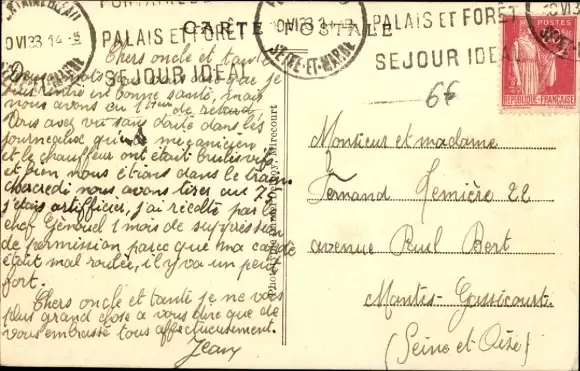 CARTE POSTALE
FONTAINEBLEAU
10 VI 33 14-
PALAIS ET FORÊT
SEJOUR IDEAL
SEINE-ET-MARNE
10 VI 33
PALAIS ET FORÊT
SEJOUR IDEAL
POSTES
REPUBLIQUE FRANÇAISE
66
Chers oncle et tante
Deux mots
plus rentré en bonne santé, mais
nous avons eu de retard
Vous avez vu sans doute dans les
journeaux qu' mécanicien
et le chauffeur ont était
et bien nous étions dans le train.
nous avons tirer au 75
j'étais artifficier, j'ai récolté par le
chef 1 mois de suppression
de permission parce que ma
était mal roulée, il y va un peu
fort.
Chers oncle et tante je ne vois
plus grand chose a vous dire que de
vous embrassé tous affectueusement.
Jean
Mirecourt
Monsieur et madame
Fernand Lemière 22
avenue Paul Bert
Mantes-Gassicourt
(Seine et Oise)